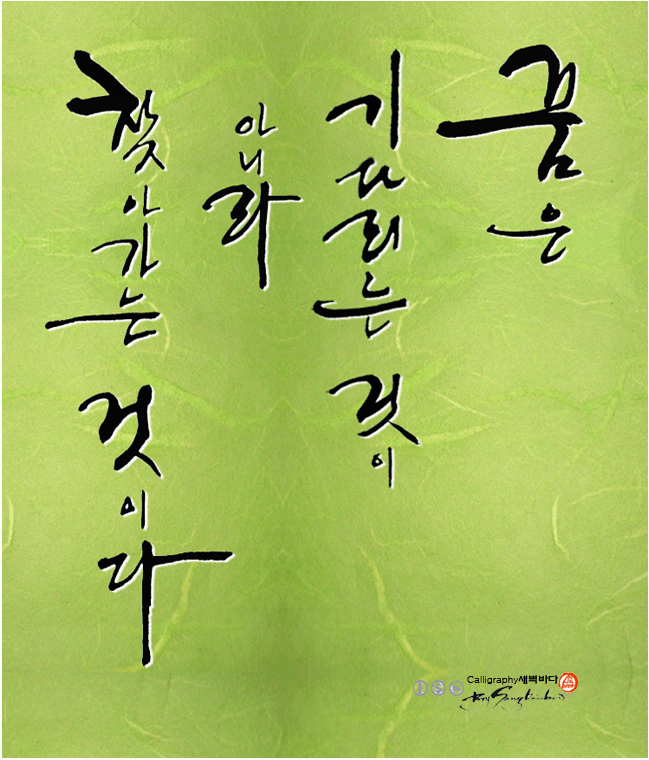 꿈은
기다리는 것이
아니라
찾아가는 것이다
Calligraphy새벽바다